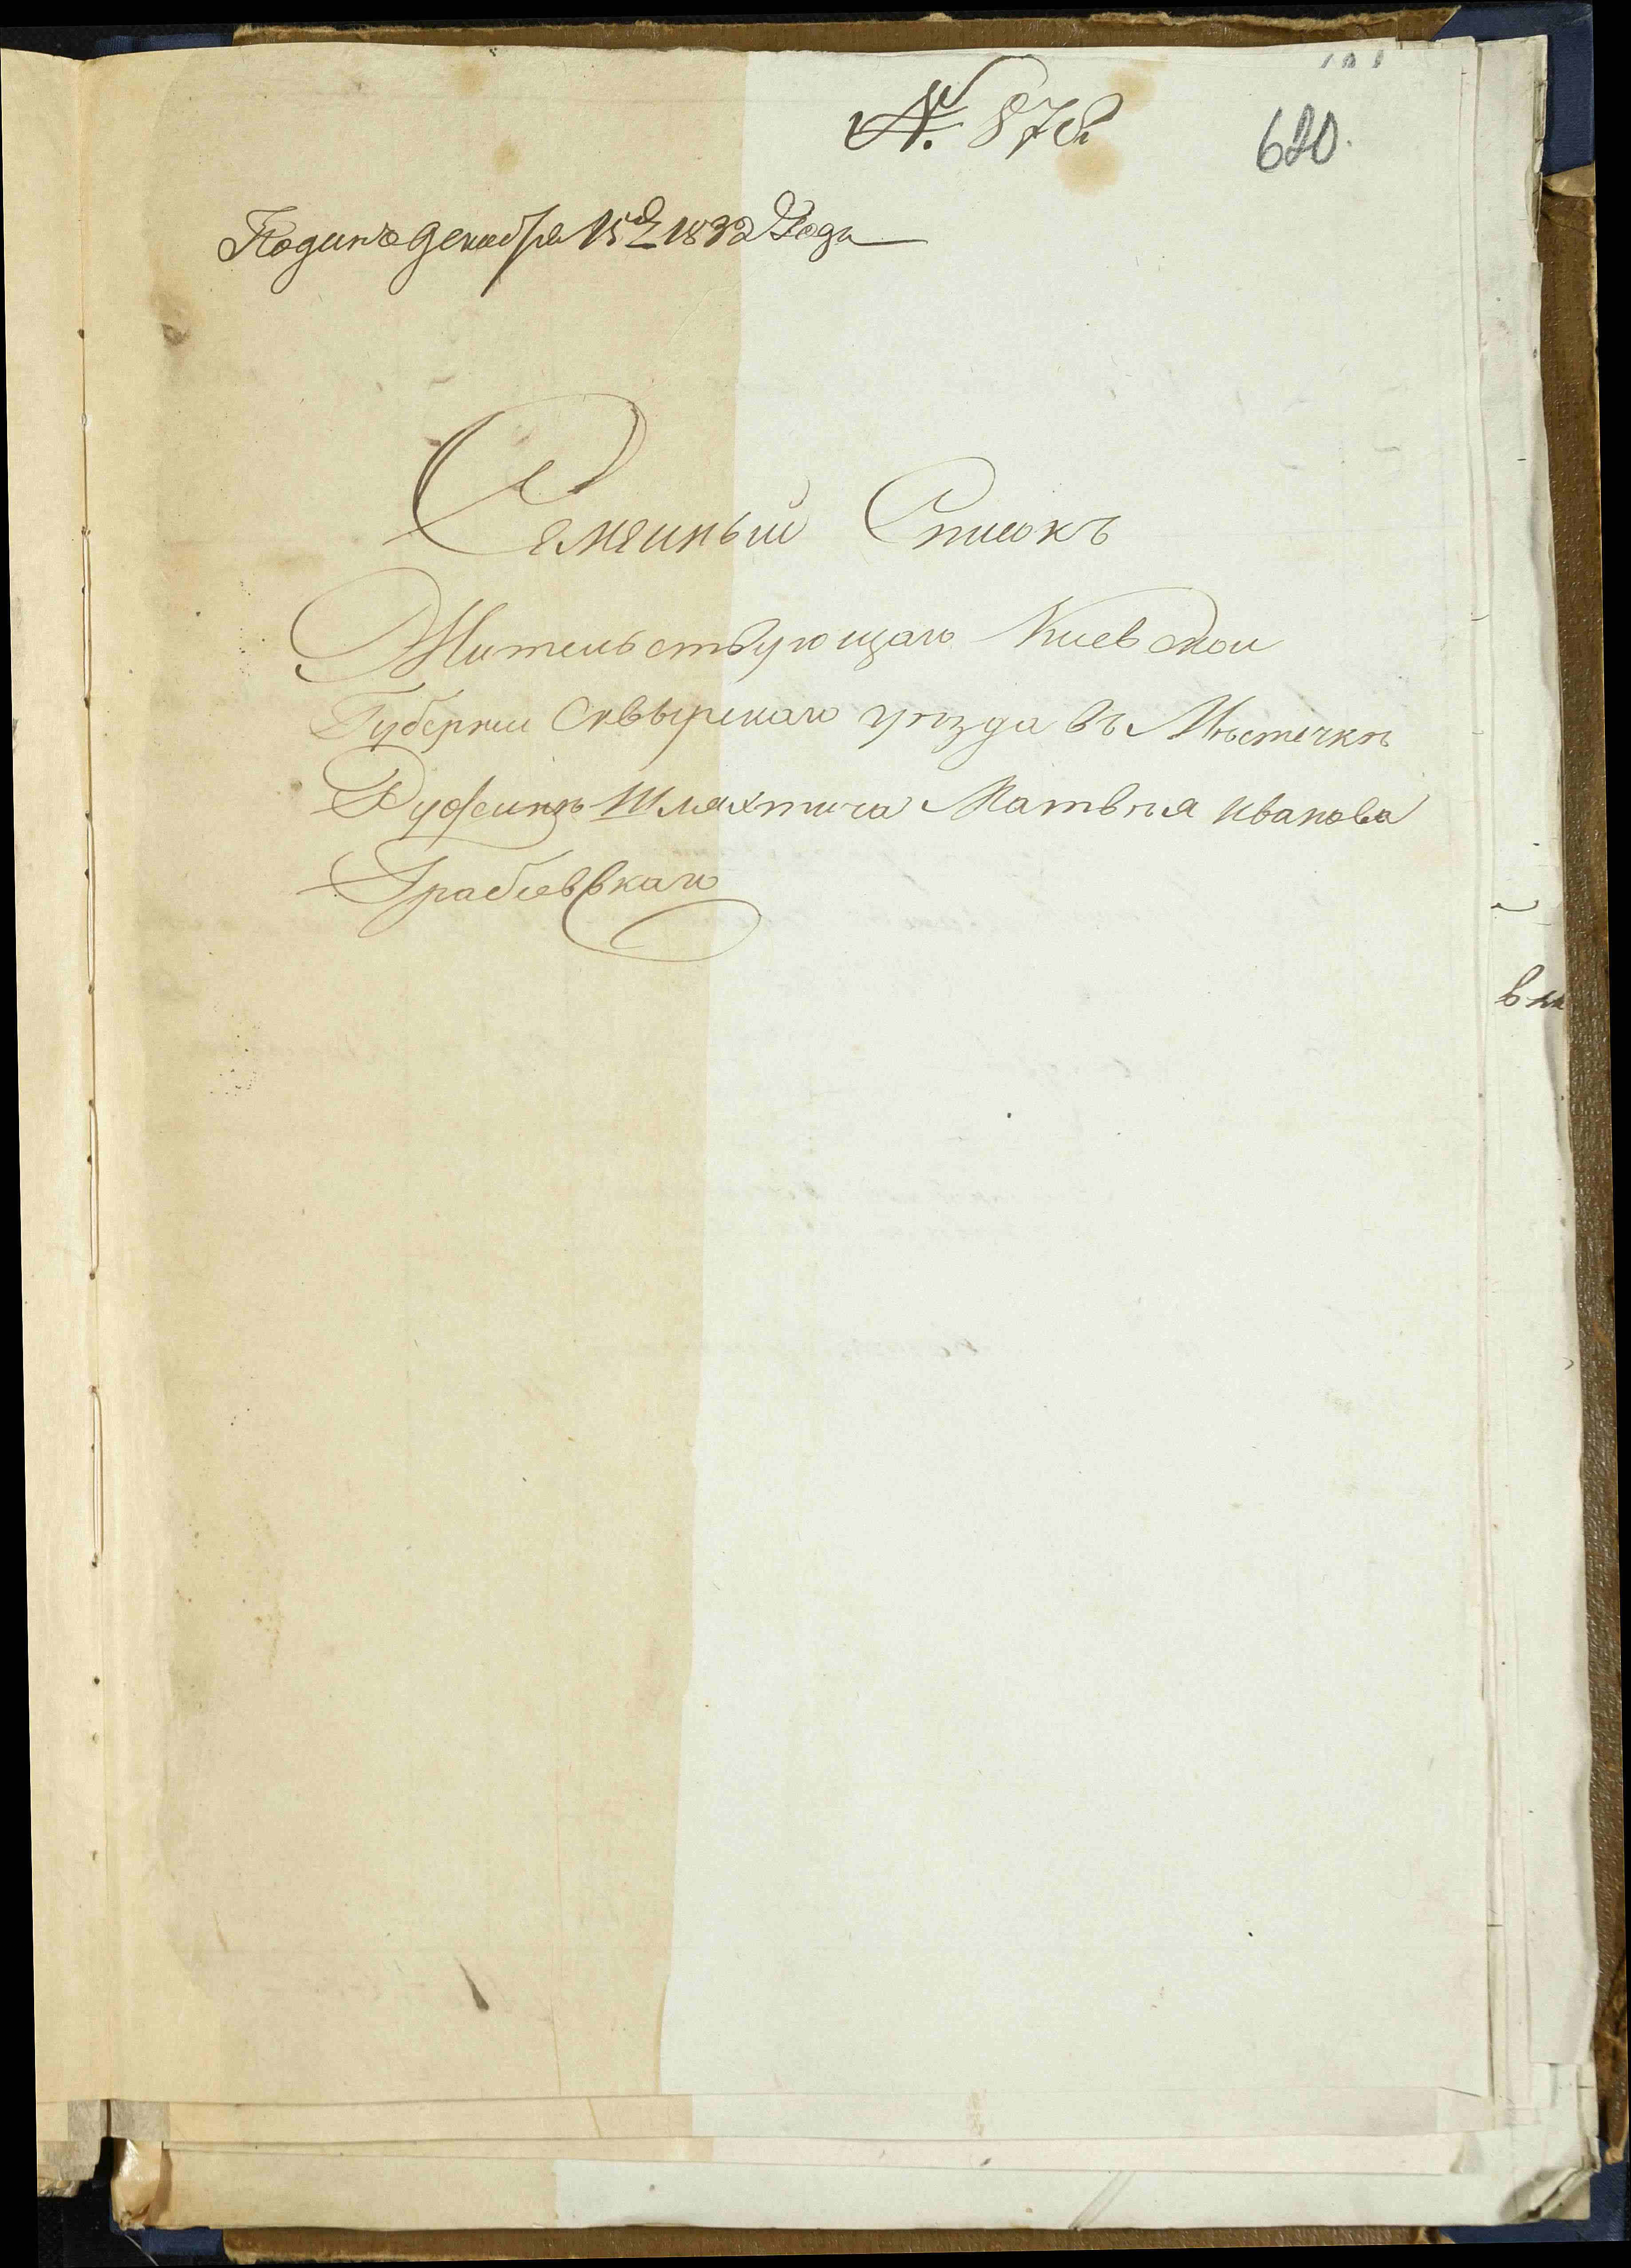 № 878
620.
Поданъ декабря 15го 1832 Года
Семейный Списокъ
Жительствующаго Киевской
Губернии Сквырскаго уѣзда въ Мѣстечкѣ
Ружинѣ Шляхтича Матвѣя Иванова
Грабовскаго